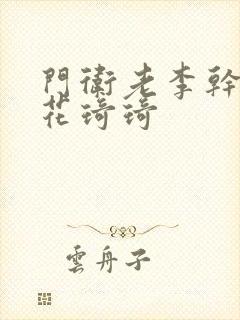 門衛老李幹
花琦琦
雲舟子